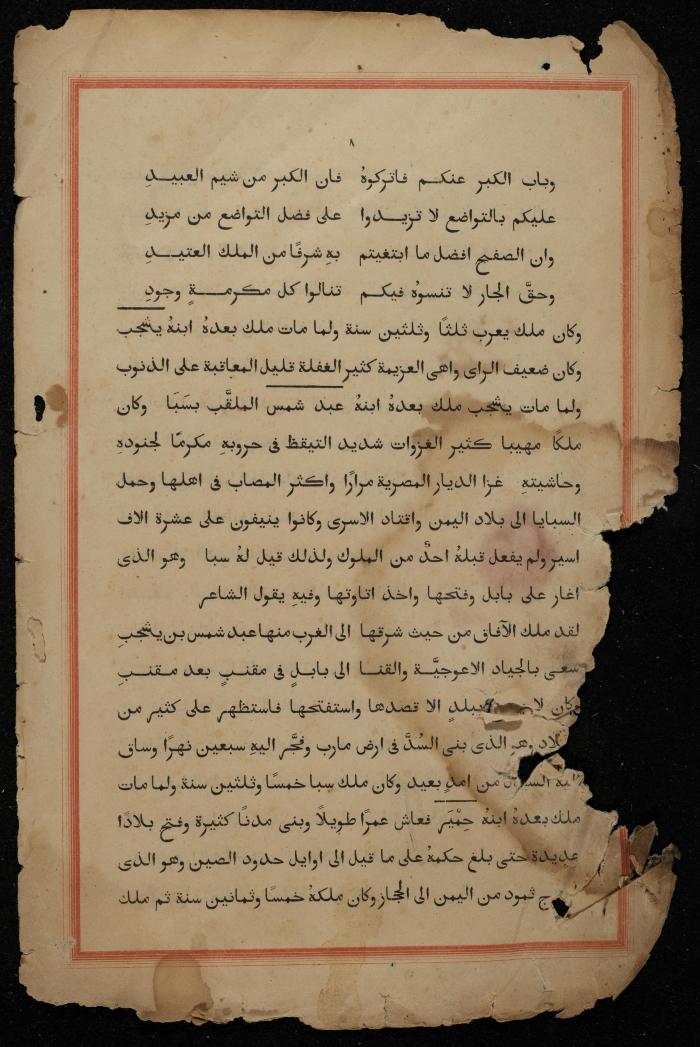 ٨
وباب الكبر عنكم فاتركوهُ فان الكبر من شيم العبيدِ
عليكم بالتواضع لا تزيدوا على فضل التواضع من مزيدِ
وان الصفح افضل ما ابتغيتم بهِ شرفًا من الملك العتيدِ
وحقَّ الجار لا تنسوهُ فيكم تنالوا كل مكرمةٍ وجودِ
وكان ملك يعرب ثلثًا وثلثين سنة ولما مات ملك بعدهُ ابنهُ يشجب
وكان ضعيف الراى واهى العزيمة كثير الغفلة قليل المعاقبة على الذنوب
ولما مات يشجب ملك بعدهُ ابنهُ عبد شمس الملقَّب بسَبَا وكان
ملكًا مهيبا كثير الغزوات شديد التيقظ فى حروبهِ مكرمًا لجنودهِ
وحاشيتهِ غزا الديار المصرية مرارًا واكثر المصاب فى اهلها وحمل
السبايا الى بلاد اليمن واقتاد الاسرى وكانوا ينيفون على عشرة الاف
اسير ولم يفعل قبلهُ احدٌ من الملوك ولذلك قيل لهُ سبا وهو الذى
اغار على بابل وفتحها واخذ اتاوتها وفيهِ يقول الشاعر
لقد ملك الآفاق من حيث شرقها الى الغرب منها عبد شمس بن يشجبِ
سعى بالجياد الاعوجيَّة والقنا الى بابلٍ فى مقنبٍ بعد مقنبِ
وكان لا ببلدٍ الا قصدها واستفتحها فاستظهر على كثير من
وهو الذى بنى السُدَّ فى ارض مارب وفجَّر اليهِ سبعين نهرًا وساق
اليه من امدٍ بعيد وكان ملك سبا خمسًا وثلثين سنة ولما مات
ملك بعدهُ ابنهُ حِمْيَر فعاش عمرًا طويلًا وبنى مدنًا كثيرة وفتح بلادًا
عديدة حتى بلغ حكمهُ على ما قيل الى اوايل حدود الصين وهو الذى
ثمود من اليمن الى الحجاز وكان ملكهُ خمسًا وثمانين سنة ثم ملك